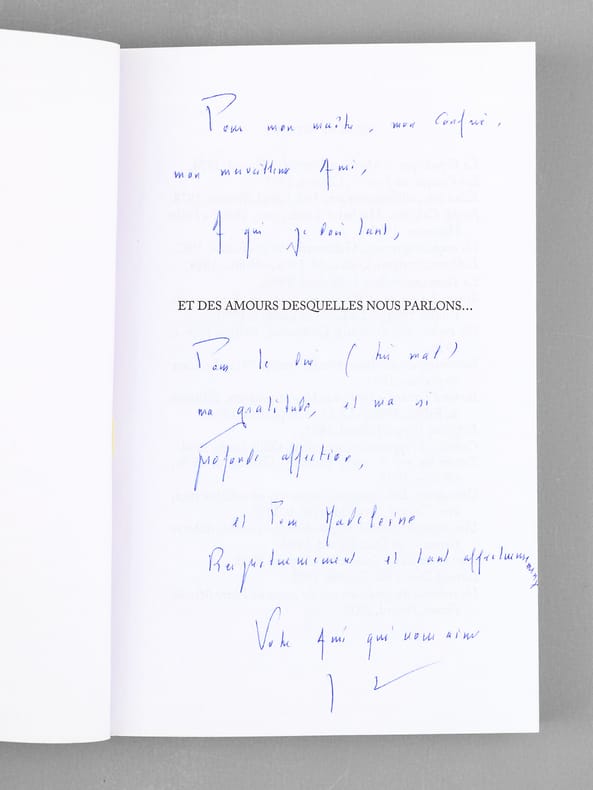 Pour mon maître, mon confrère,
mon merveilleux Ami,
A qui je dois tant,
ET DES AMOURS DESQUELLES NOUS PARLONS...
Pour le dire (très mal)
ma gratitude, et ma si
profonde affection,
et Pour Madeleine
Respectueusement et tant affectueusement
Votre Ami qui vous aime